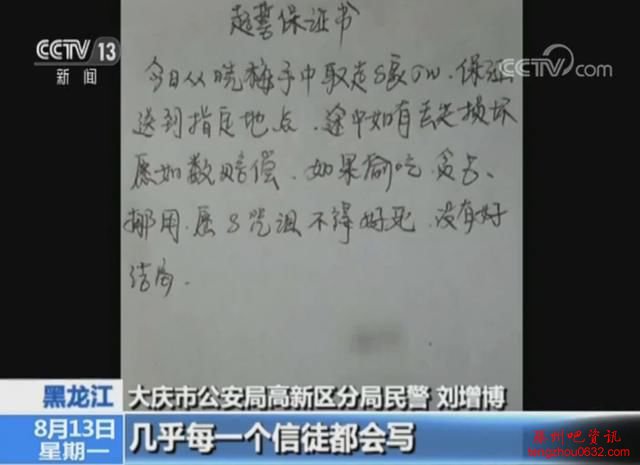 CCTV 13
新闻
CCTV.com
起誓保证书
今日从晓梅手中取走S家0W.保证
送到指定地点.途中如有丢失损坏
愿如数赔偿.如果偷吃.贪占、
挪用.愿S咒诅不得好死.没有好
结局.
黑龙江
8月13日
星期一
大庆市公安局高新区分局民警 刘增博
几乎每一个信徒都会写
滕州吧资讯
tengzhou0632.com